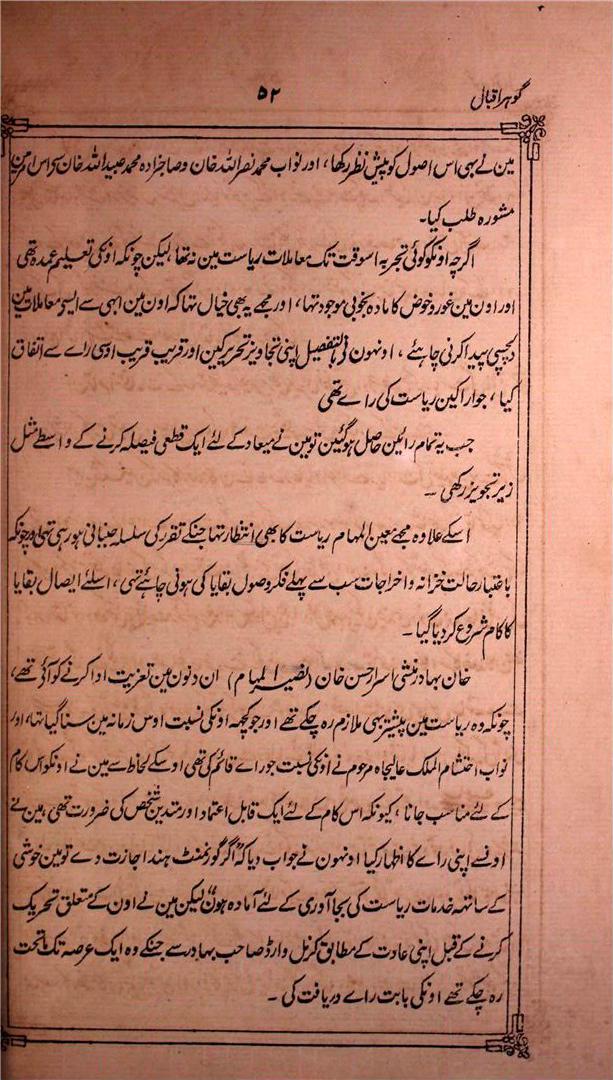 گوہر اقبال
۵۲
مین نے بہی اس اصول کو پیش نظر رکھا، اور نواب محمد نصر اللہ خان و صاحبزادہ محمد عبید اللہ خان سے بہی اس امر مین
مشورہ طلب کیا۔
اگرچہ اونکو کوئی تجربہ اسوقت تک معاملات ریاست مین نہ تھا لیکن چونکہ اونکی تعلیم عمدہ تھی
اور اون مین غور و خوض کا مادہ بخوبی موجود تہا، اور مجھے یہ بھی خیال تہا کہ اون مین ابہی سے ایسے معاملات مین
دلچسپی پیدا کرنی چاہئے، اونہون نے بالتفصیل اپنی تجاویز تحریر کین اور قریب قریب اوسی راے سے اتفاق
کیا، جو اراکین ریاست کی راے تھی
جب یہ تمام رائین حاصل ہوگئین تو مین نے میعاد کے لئے ایک قطعی فیصلہ کرنے کے واسطے مثل
زیر تجویز رکھی۔
اسکے علاوہ مجھے معین المہام ریاست کا بھی انتظار تہا جنکے تقرر کی سلسلہ جنبانی ہو رہی تہی اور چونکہ
باعتبار حالت خزانہ و اخراجات سب سے پہلے فکر وصول بقایا کی ہونی چاہئے تہی، اسلئے ایصال بقایا
کا کام شروع کر دیا گیا۔
خان بہادر منشی اسرار حسن خان (نصیر المہام) ان دنون مین تعزیت ادا کرنے کو آئے تھے،
چونکہ وہ ریاست مین پیشتر بہی ملازم رہ چکے تھے اور جو کچھ اونکی نسبت اوس زمانہ مین سنا گیا تہا، اور
نواب احتشام الملک عالیجاہ مرحوم نے اونکی نسبت جو راے قائم کی تھی اوسکے لحاظ سے مین نے اونکو اس کام
کے لئے مناسب جانا، کیونکہ اس کام کے لئے ایک قابل اعتماد اور متدین شخص کی ضرورت تھی، مین نے
اونسے اپنی راے کا اظہار کیا اونہون نے جواب دیا کہ "اگر گورنمنٹ ہند اجازت دے تو مین خوشی
کے ساتھہ خدمات ریاست کی بجا آوری کے لئے آمادہ ہون" لیکن مین نے اون کے متعلق تحریک
کرنے کے قبل اپنی عادت کے مطابق کرنل وارڈ صاحب بہادر سے جنکے وہ ایک عرصہ تک ماتحت
رہ چکے تھے اونکی بابت راے دریافت کی۔